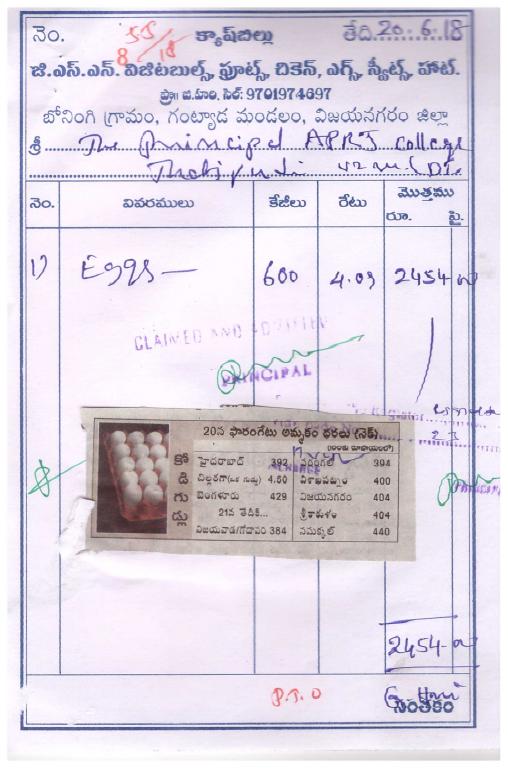 నెం. 55 8/18 క్యాష్‌బిల్లు తేది. 20-6-18
జి.ఎస్.ఎన్. విజిటబుల్స్, ఫ్రూట్స్, చికెన్, ఎగ్స్, స్వీట్స్, హాట్.
ప్రొః జి.హరి. సెల్: 9701974697
బోనంగి గ్రామం, గంట్యాడ మండలం, విజయనగరం జిల్లా
శ్రీ The Principal APRJ College
Thatipudi
నెం. వివరములు కేజీలు రేటు మొత్తము
రూ. పై.
1) Eggs — 600 4.09 2454
CLAIMED AND
PRINCIPAL
20న ఫారంగేటు అమ్మకం ధరలు (నెక్)
కోడిగుడ్లు
హైదరాబాద్ 392 వరంగల్ 394
చిల్లర(ఒక గుడ్డు) 4.50 విశాఖపట్నం 400
బెంగళూరు 429 విజయనగరం 404
21న తేదికి... శ్రీకాకుళం 404
విజయవాడ/గోదావరి 384 నమక్కల్ 440
2454
P.T.O G. Hari
సంతకం